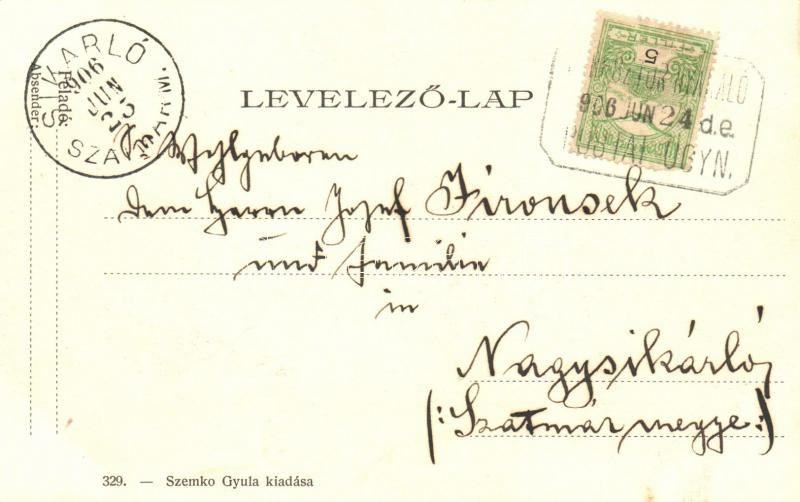 KARLÓ
906
JUN
23
SZATMÁR M.
Feladó:
Absender:
LEVELEZŐ-LAP
FILLÉR
5
906 JUN 24 d.e.
POSTAI ÜGYN.
Sr Wohlgeboren
dem Herrn Jozef Jironsek
und Familie
in
Nagysikárló
(: Szatmár megye :)
329. — Szemko Gyula kiadása